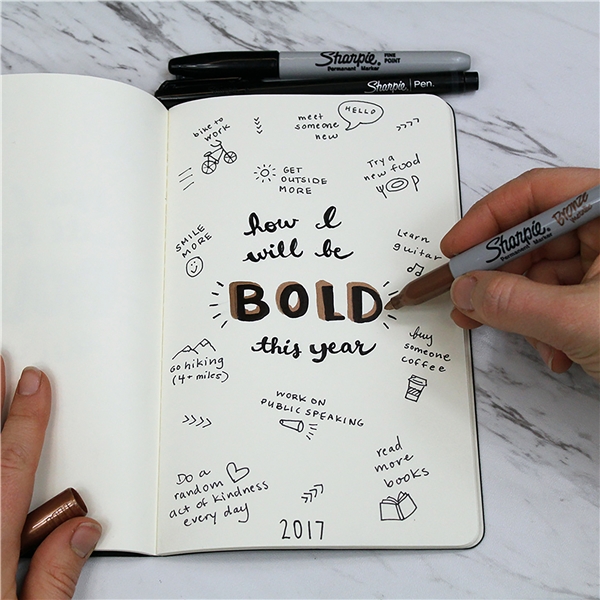 Sharpie FINE POINT
Permanent Marker
Sharpie Pen.
bike to
work
meet
someone
new
HELLO
GET
OUTSIDE
MORE
Try a
new food
SMILE
MORE
how I
will be
BOLD
this year
Learn
guitar
Sharpie Bronze
Permanent Marker
go hiking
(4+ miles)
buy
someone
coffee
WORK ON
PUBLIC SPEAKING
Do a
random
act of kindness
every day
read
more
books
2017